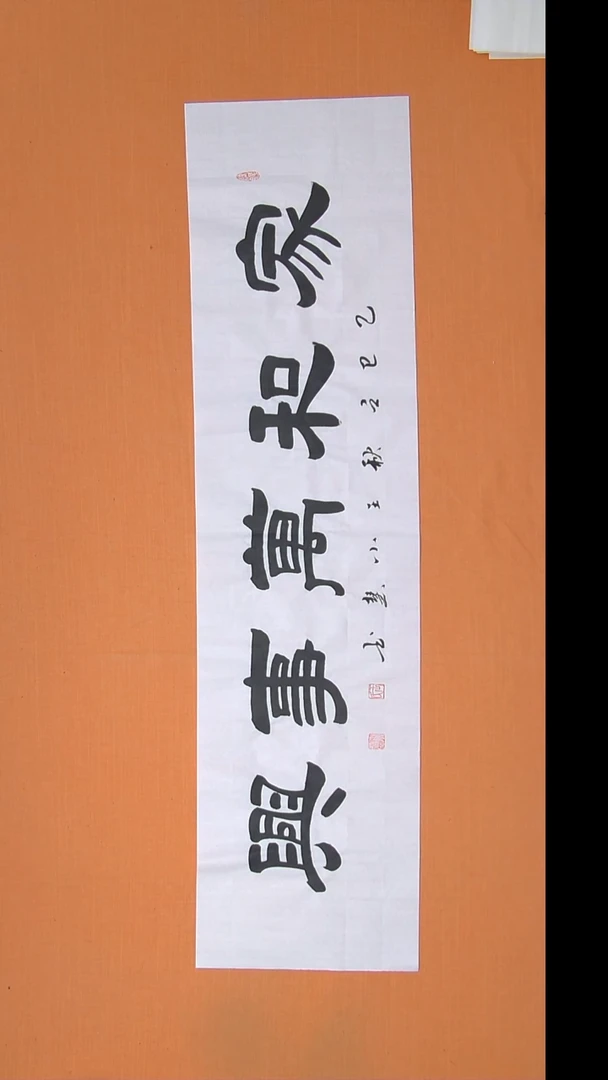 家和萬事興
乙巳立秋王小慧书